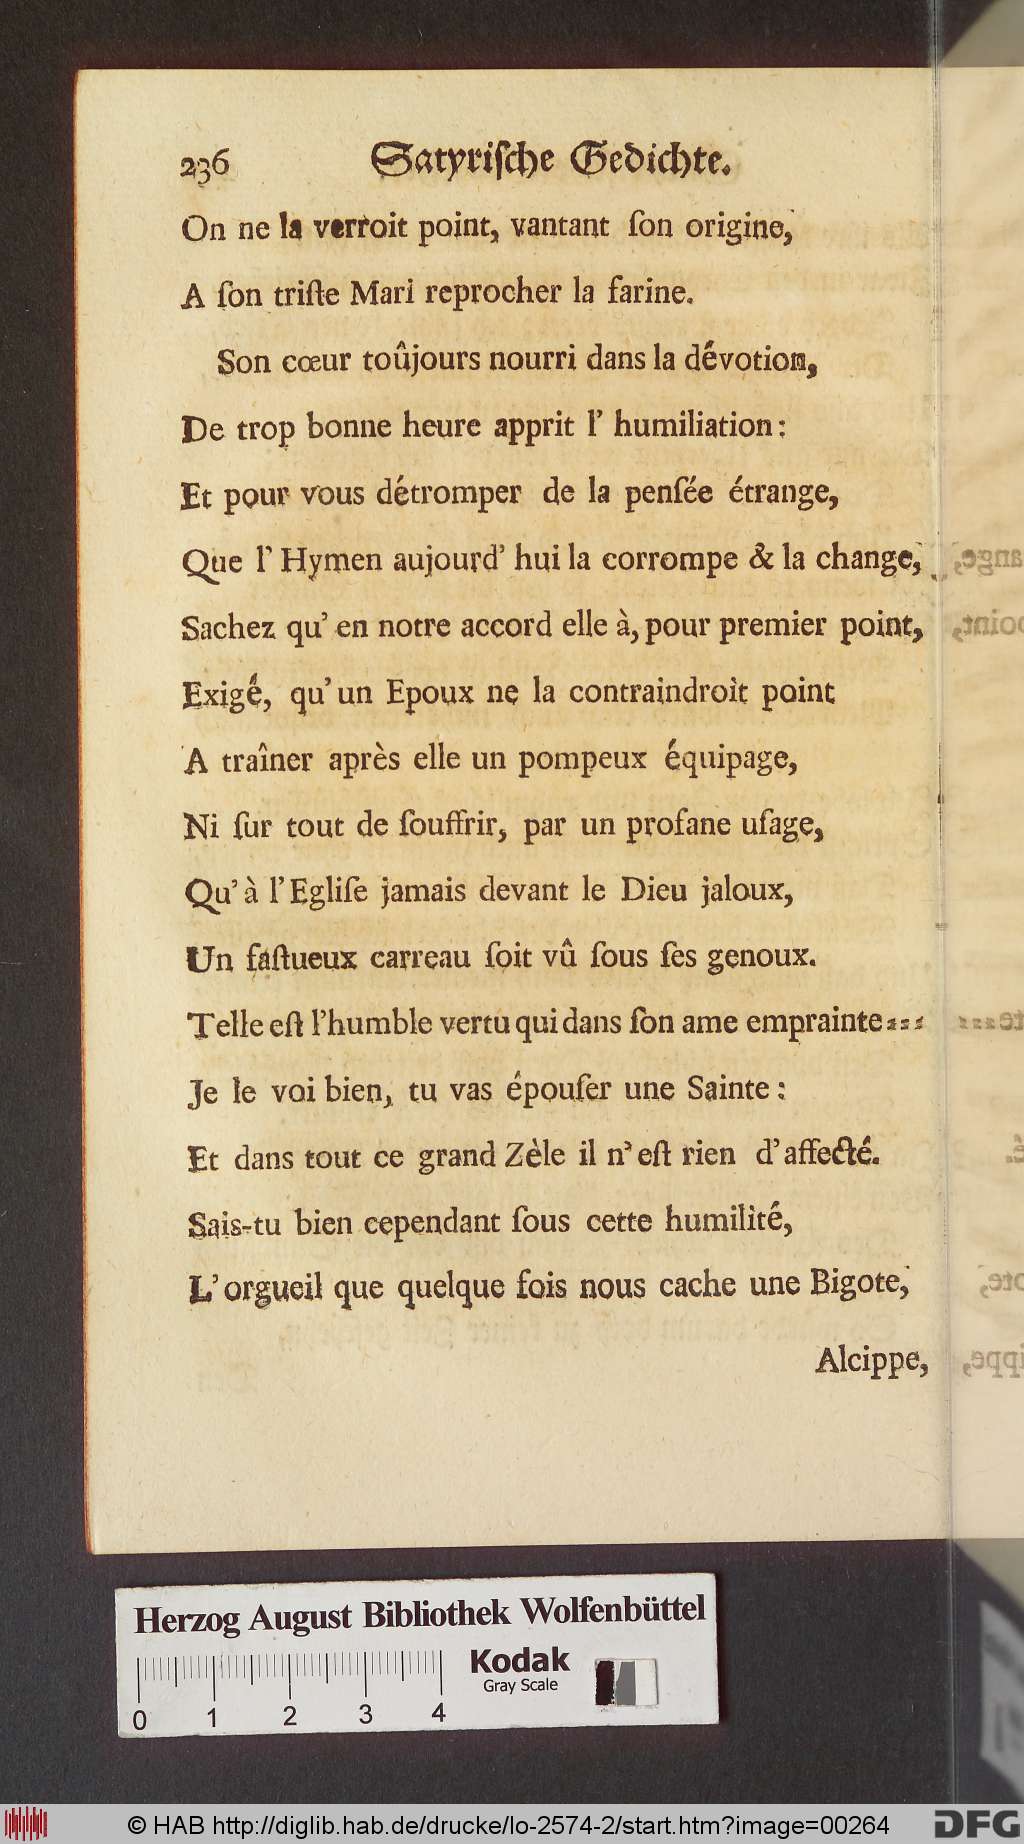 236 Satyriſche Gedichte.
On ne la verroit point, vantant ſon origine,
A ſon triſte Mari reprocher la farine.
Son cœur toûjours nourri dans la dévotion,
De trop bonne heure apprit l' humiliation:
Et pour vous détromper de la penſée étrange,
Que l' Hymen aujourd' hui la corrompe & la change,
Sachez qu' en notre accord elle à, pour premier point,
Exigé, qu' un Epoux ne la contraindroit point
A traîner après elle un pompeux équipage,
Ni ſur tout de ſouffrir, par un profane uſage,
Qu' à l' Egliſe jamais devant le Dieu jaloux,
Un faſtueux carreau ſoit vû ſous ſes genoux.
Telle eſt l'humble vertu qui dans ſon ame emprainte⸗⸗⸗
Je le voi bien, tu vas épouſer une Sainte:
Et dans tout ce grand Zèle il n' eſt rien d' affecté.
Sais-tu bien cependant ſous cette humilité,
L' orgueil que quelque fois nous cache une Bigote,
Alcippe,
Herzog August Bibliothek Wolfenbüttel
Kodak
Gray Scale
0 1 2 3 4
© HAB http://diglib.hab.de/drucke/lo-2574-2/start.htm?image=00264
DFG